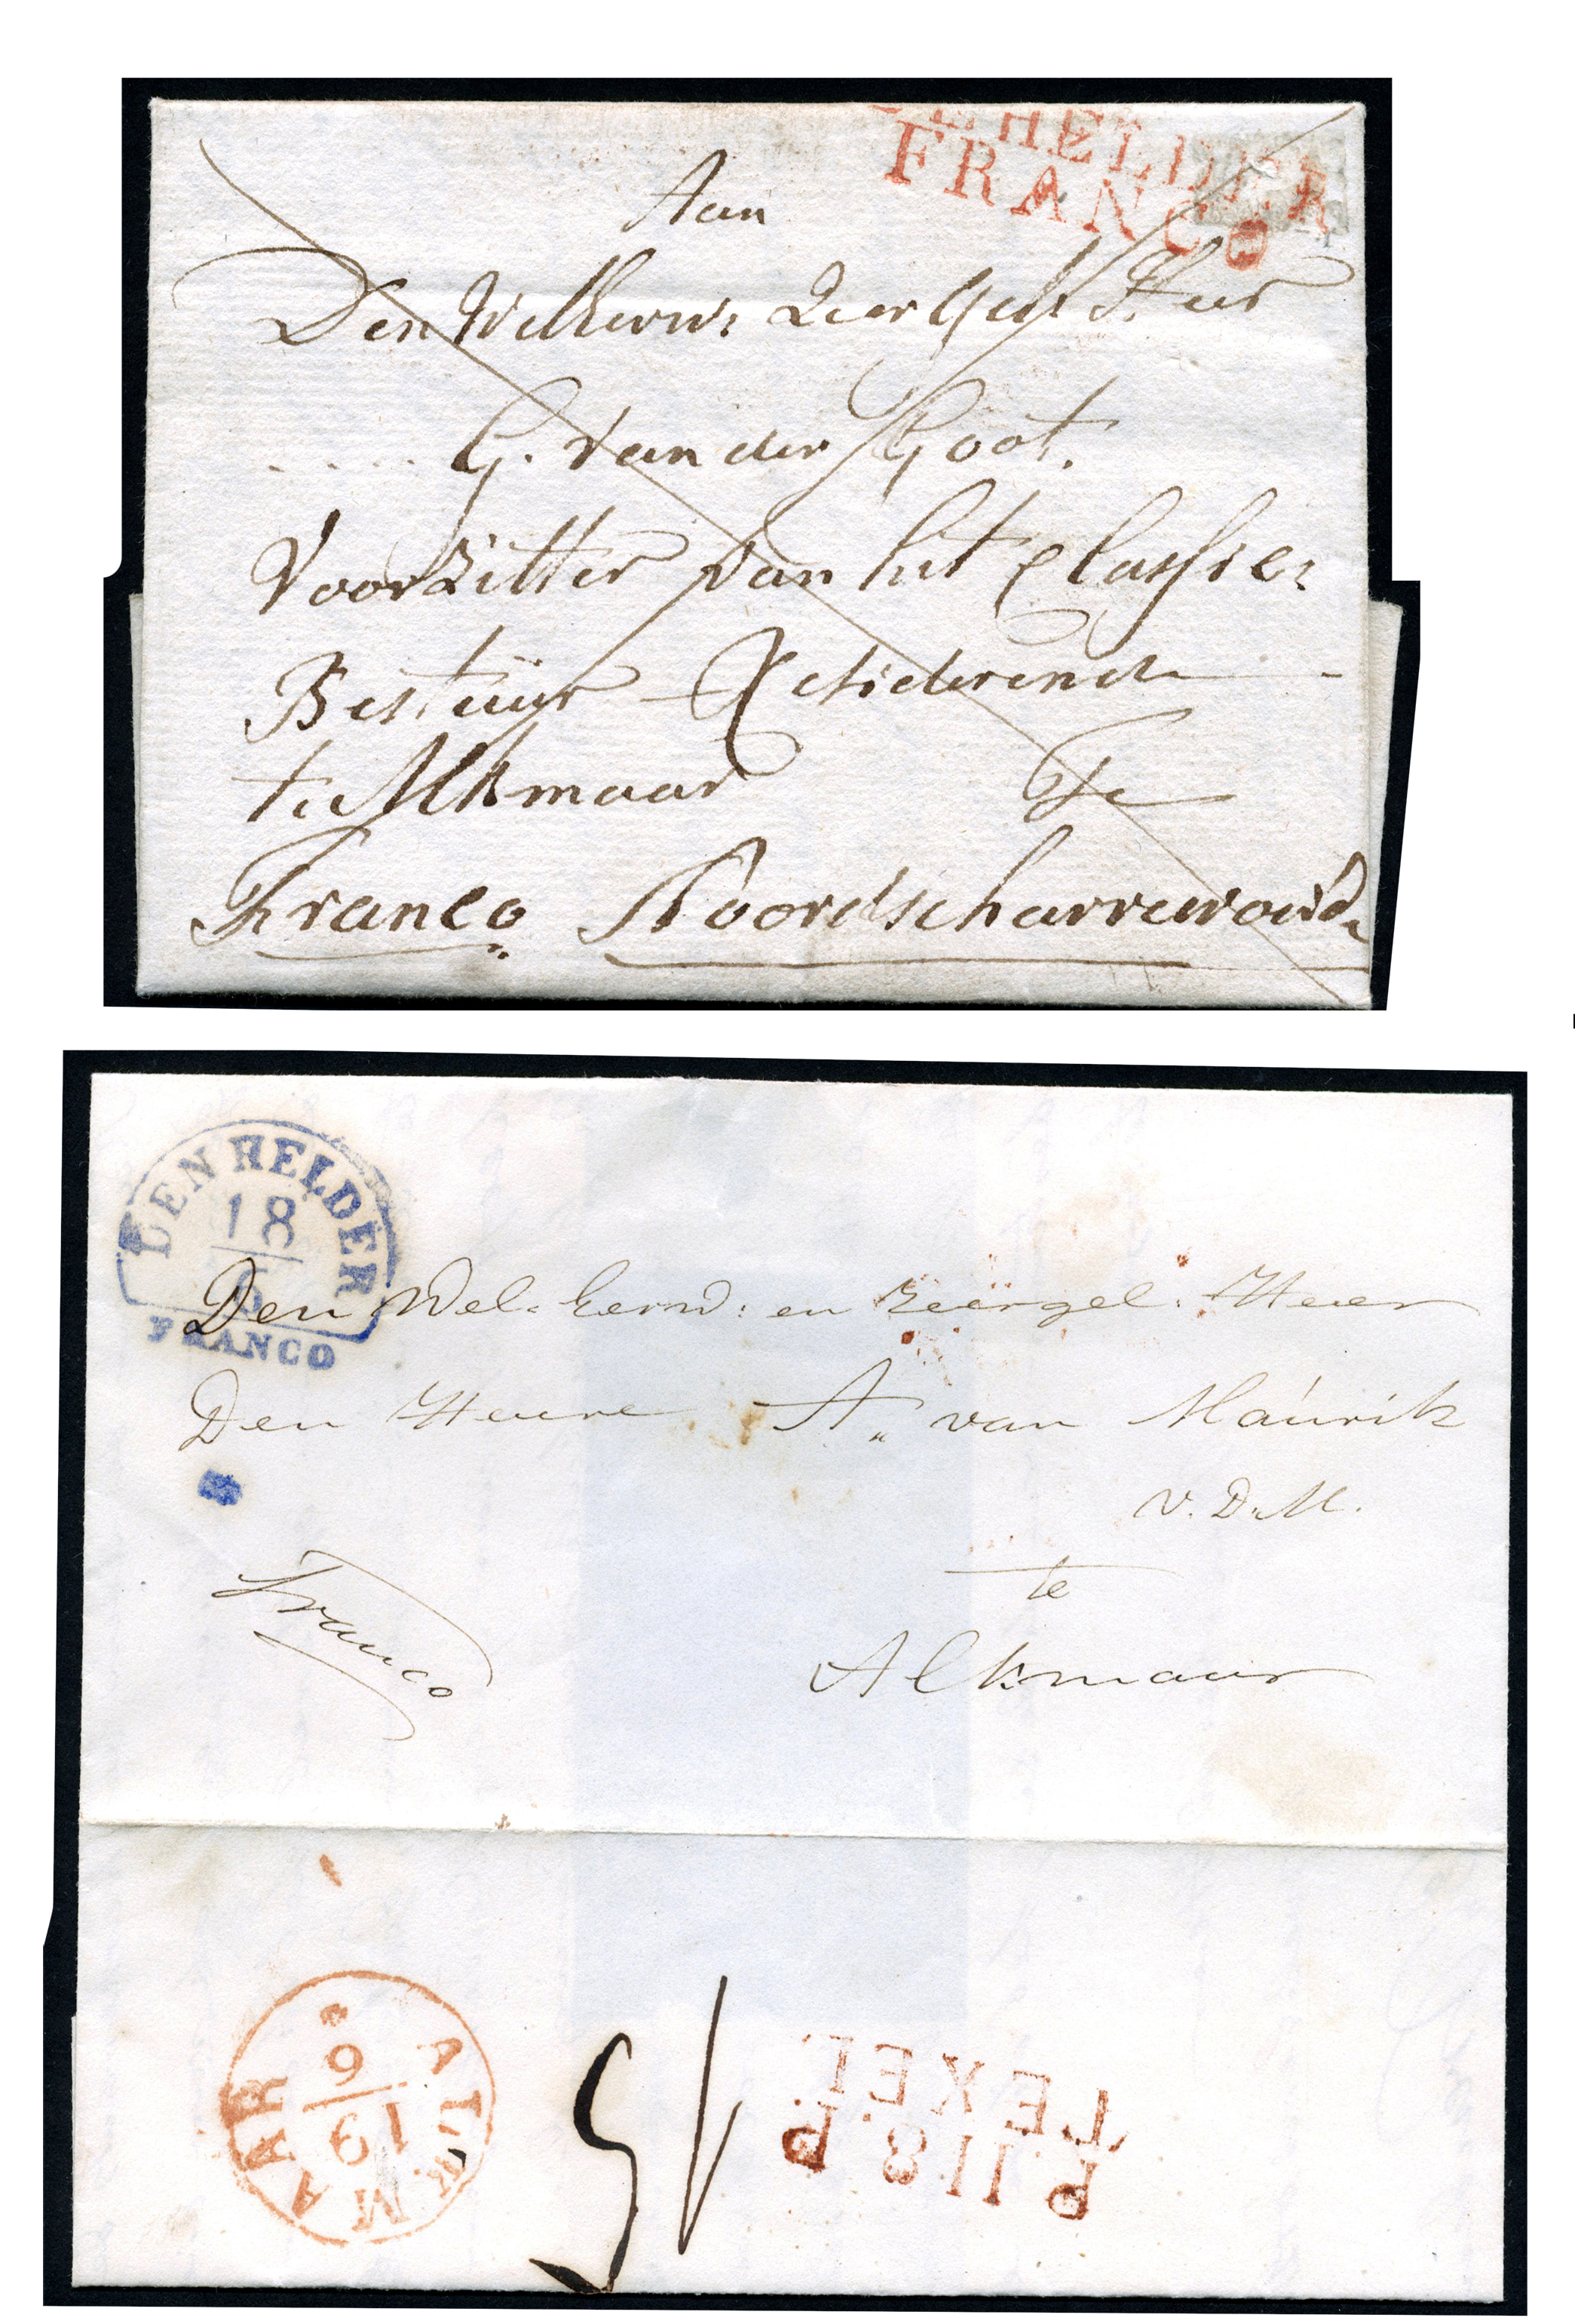 DE HELDER
FRANCO
Aan
Den WelEerw: Zeer Gel: Heer
G. van der Goot.
Voorzitter van het Classie:
Bestuur Resideerende
te Alkmaar Te
Franco Noordscharrewoude
DEN HELDER
18
6
FRANCO
Den Wel-Eerw: en Zeergel. Heer
Den Heere A. van Maúrik
v. D. M.
te
Franco
Alkmaar
ALKMAAR
19
6
51
P118P
TEXEL